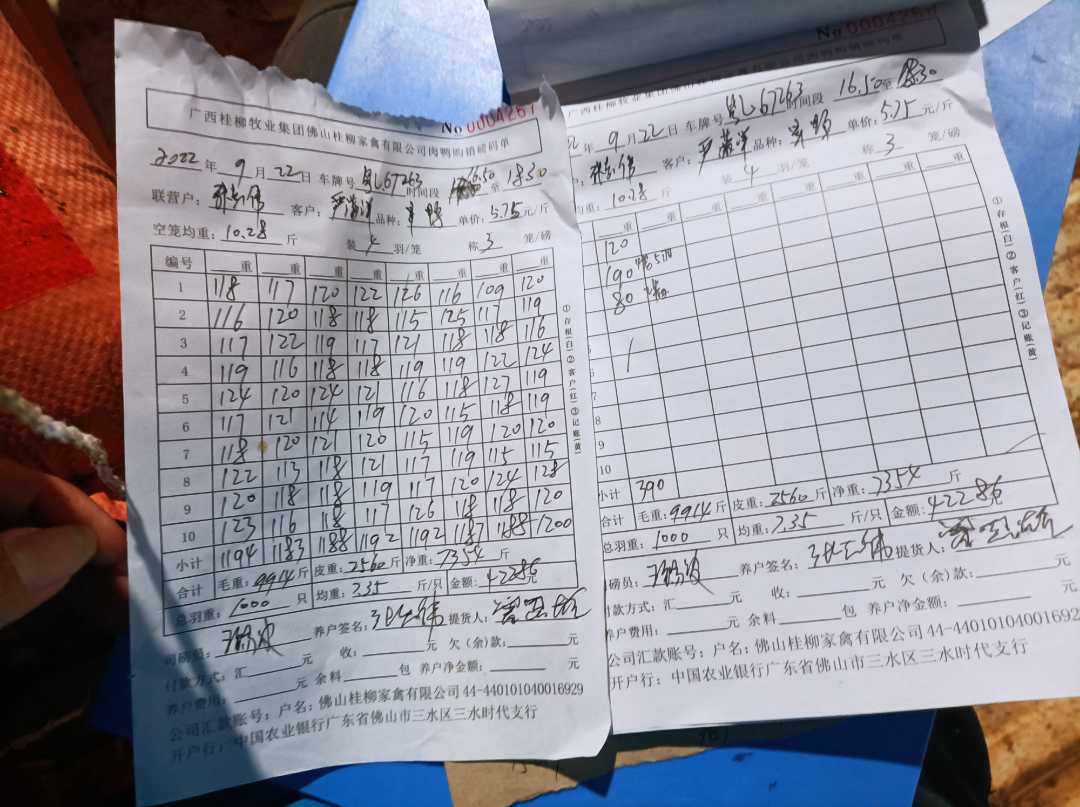 No 0004267
广西桂柳牧业集团佛山桂柳家禽有限公司肉鸭购销磅码单
2022年 9月 22日 车牌号 L67263 时间段 16.50 至 18.30
联营户: 客户: 品种: 单价: 5.75元/斤
空笼均重: 10.28 斤 装 4 羽/笼 称 3 笼/磅
编号 重 重 重 重 重 重 重 重
1 118 117 120 122 126 116 109 120
2 116 120 118 118 115 125 117 119
3 117 122 119 117 121 118 118 116
4 119 116 118 118 119 119 122 124
5 124 120 124 121 116 118 127 119
6 117 121 114 119 120 115 118 119
7 118 120 121 120 115 119 120 120
8 122 113 118 121 117 119 115 115
9 120 118 118 119 117 120 124 128
10 123 116 118 117 126 118 118 120
小计 1194 1183 1188 1192 1192 1187 1188 1200
合计 毛重: 9914斤 皮重: 2560斤 净重: 7354 斤
总羽重: 1000 只 均重: 7.35 斤/只 金额: 42286元
司磅员: 养户签名: 提货人:
付款方式: 汇 元 收: 元 欠(余)款: 元
养户费用: 元 余料 包 养户净金额: 元
公司汇款账号: 户名: 佛山桂柳家禽有限公司 44-440101040016929
开户行: 中国农业银行广东省佛山市三水区三水时代支行
①存根(白)②客户(红)③记账(黄)
No 0004267
广西桂柳牧业集团佛山桂柳家禽有限公司
年 9月22日 车牌号 L67263 时间段 16.50 至 18.30
客户: 品种: 单价: 5.75 元/斤
均重: 10.28 装 4 羽/笼 称 3 笼/磅
重 重 重 重 重 重 重 重
120
190
80
7
8
9
10
小计 390
合计 毛重: 9914斤 皮重: 2560斤 净重: 7354 斤
总羽重: 1000 只 均重: 7.35 斤/只 金额: 42286
磅员: 养户签名: 提货人:
付款方式: 汇 元 收: 元 欠(余)款: 元
养户费用: 元 余料 包 养户净金额: 元
公司汇款账号: 户名: 佛山桂柳家禽有限公司 44-440101040016929
开户行: 中国农业银行广东省佛山市三水区三水时代支行
①存根(白)②客户(红)③记账(黄)